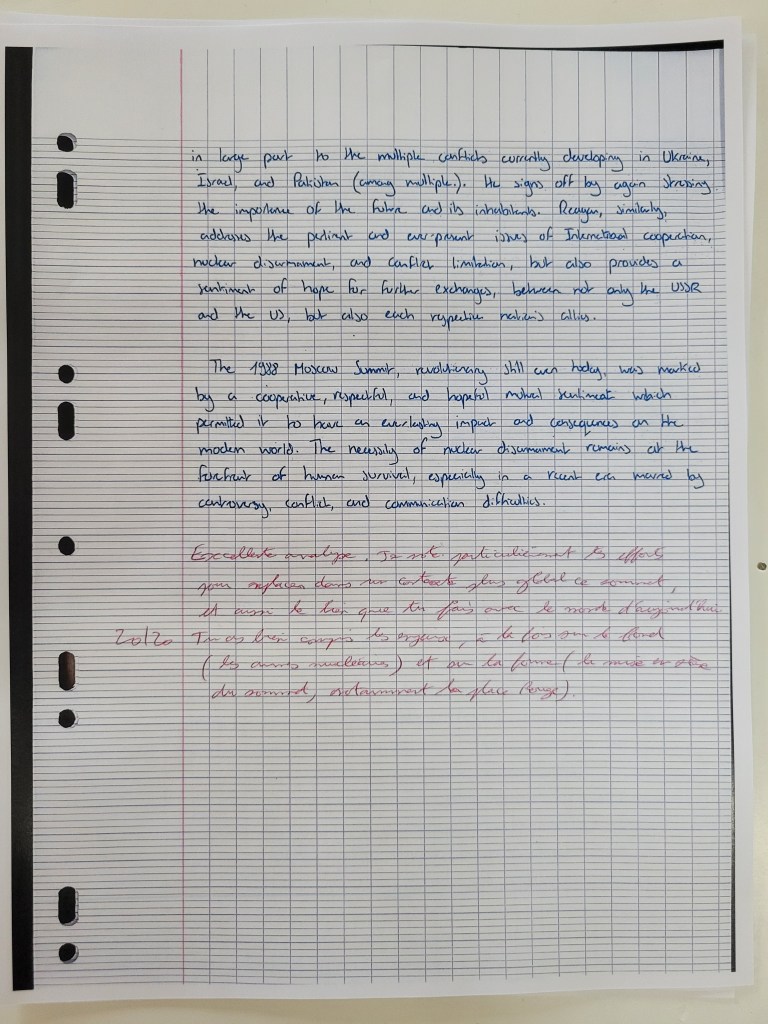 in large part to the multiple conflicts currently developing in Ukraine,
Israel, and Pakistan (among multiple.). He signs off by again stressing
the importance of the future and its inhabitants. Reagan, similarly,
addresses the pertinent and ever-present issues of International cooperation,
nuclear disarmament, and conflict limitation, but also provides a
sentiment of hope for further exchanges, between not only the USSR
and the US, but also each respective nation's allies.
The 1988 Moscow Summit, revolutionary still even today, was marked
by a cooperative, respectful, and hopeful mutual sentiment which
permitted it to have an everlasting impact and consequences on the
modern world. The necessity of nuclear disarmament remains at the
forefront of human survival, especially in a recent era marred by
controversy, conflict, and communication difficulties.
Excellente analyse. Je note particulièrement tes efforts
pour replacer dans un contexte plus global ce sommet,
et aussi le lien que tu fais avec le monde d'aujourd'hui
20/20 Tu as bien compris les enjeux, à la fois sur le fond
(les armes nucléaires) et sur la forme (la mise en scène
du sommet, notamment la place Rouge).